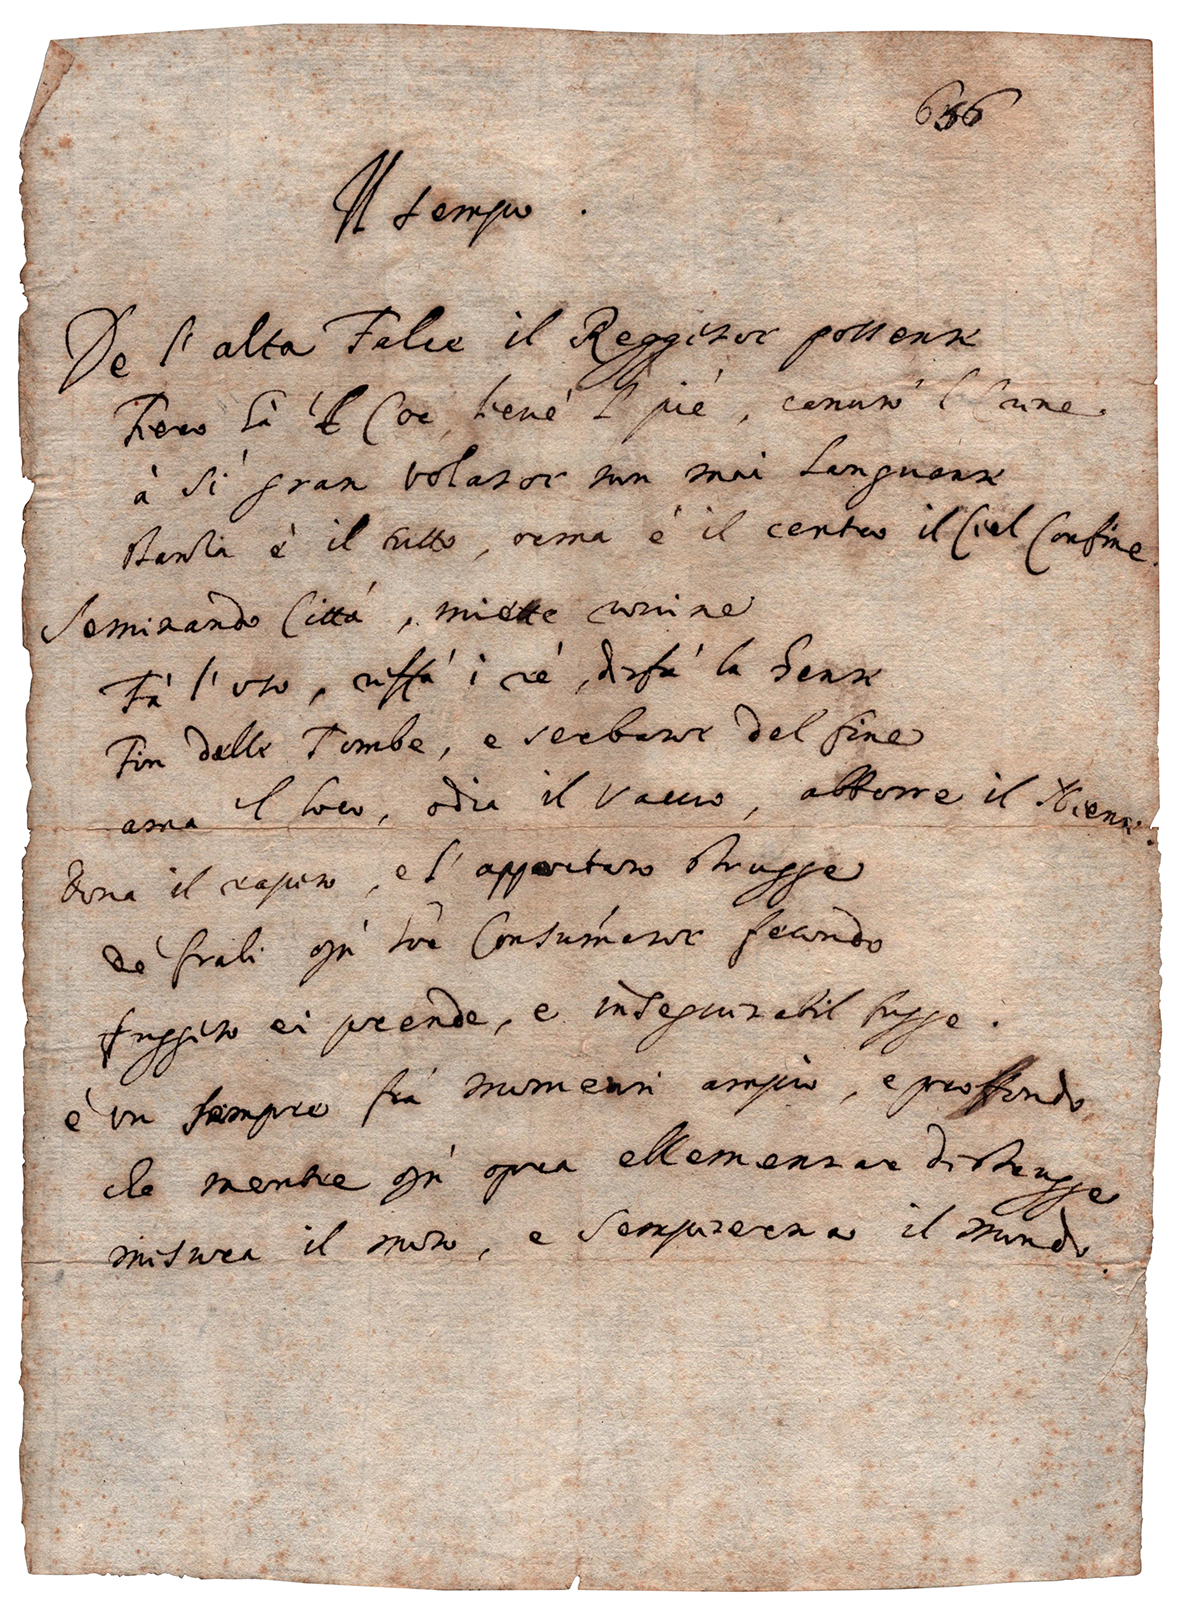 656
Il tempo.
De l'alta Falce il Reggitor possente
Fiero hà 'l Cor, lieve 'l piè, canuto 'l Crine.
à sì gran volator non mai languente
stanza è il tutto, orma è il centro il Ciel Confine.
Seminando Città, miette ruuine
Fà l'uso, riffà i rè, disfà la Gente
Fin delle Tombe, e serbator del fine
ama 'l loco, odia il vacuo, abborre il Niente.
Dona il rapito, e l' apportato strugge
de' frali ogn' hor Consumator fecondo
fuggito ei prende, e inseguitabil fugge.
è un sempre frà momenti ampio, e proffondo
che mentre ogn' opra ellementare distrugge
misura il moto, e sempiterna il mondo.